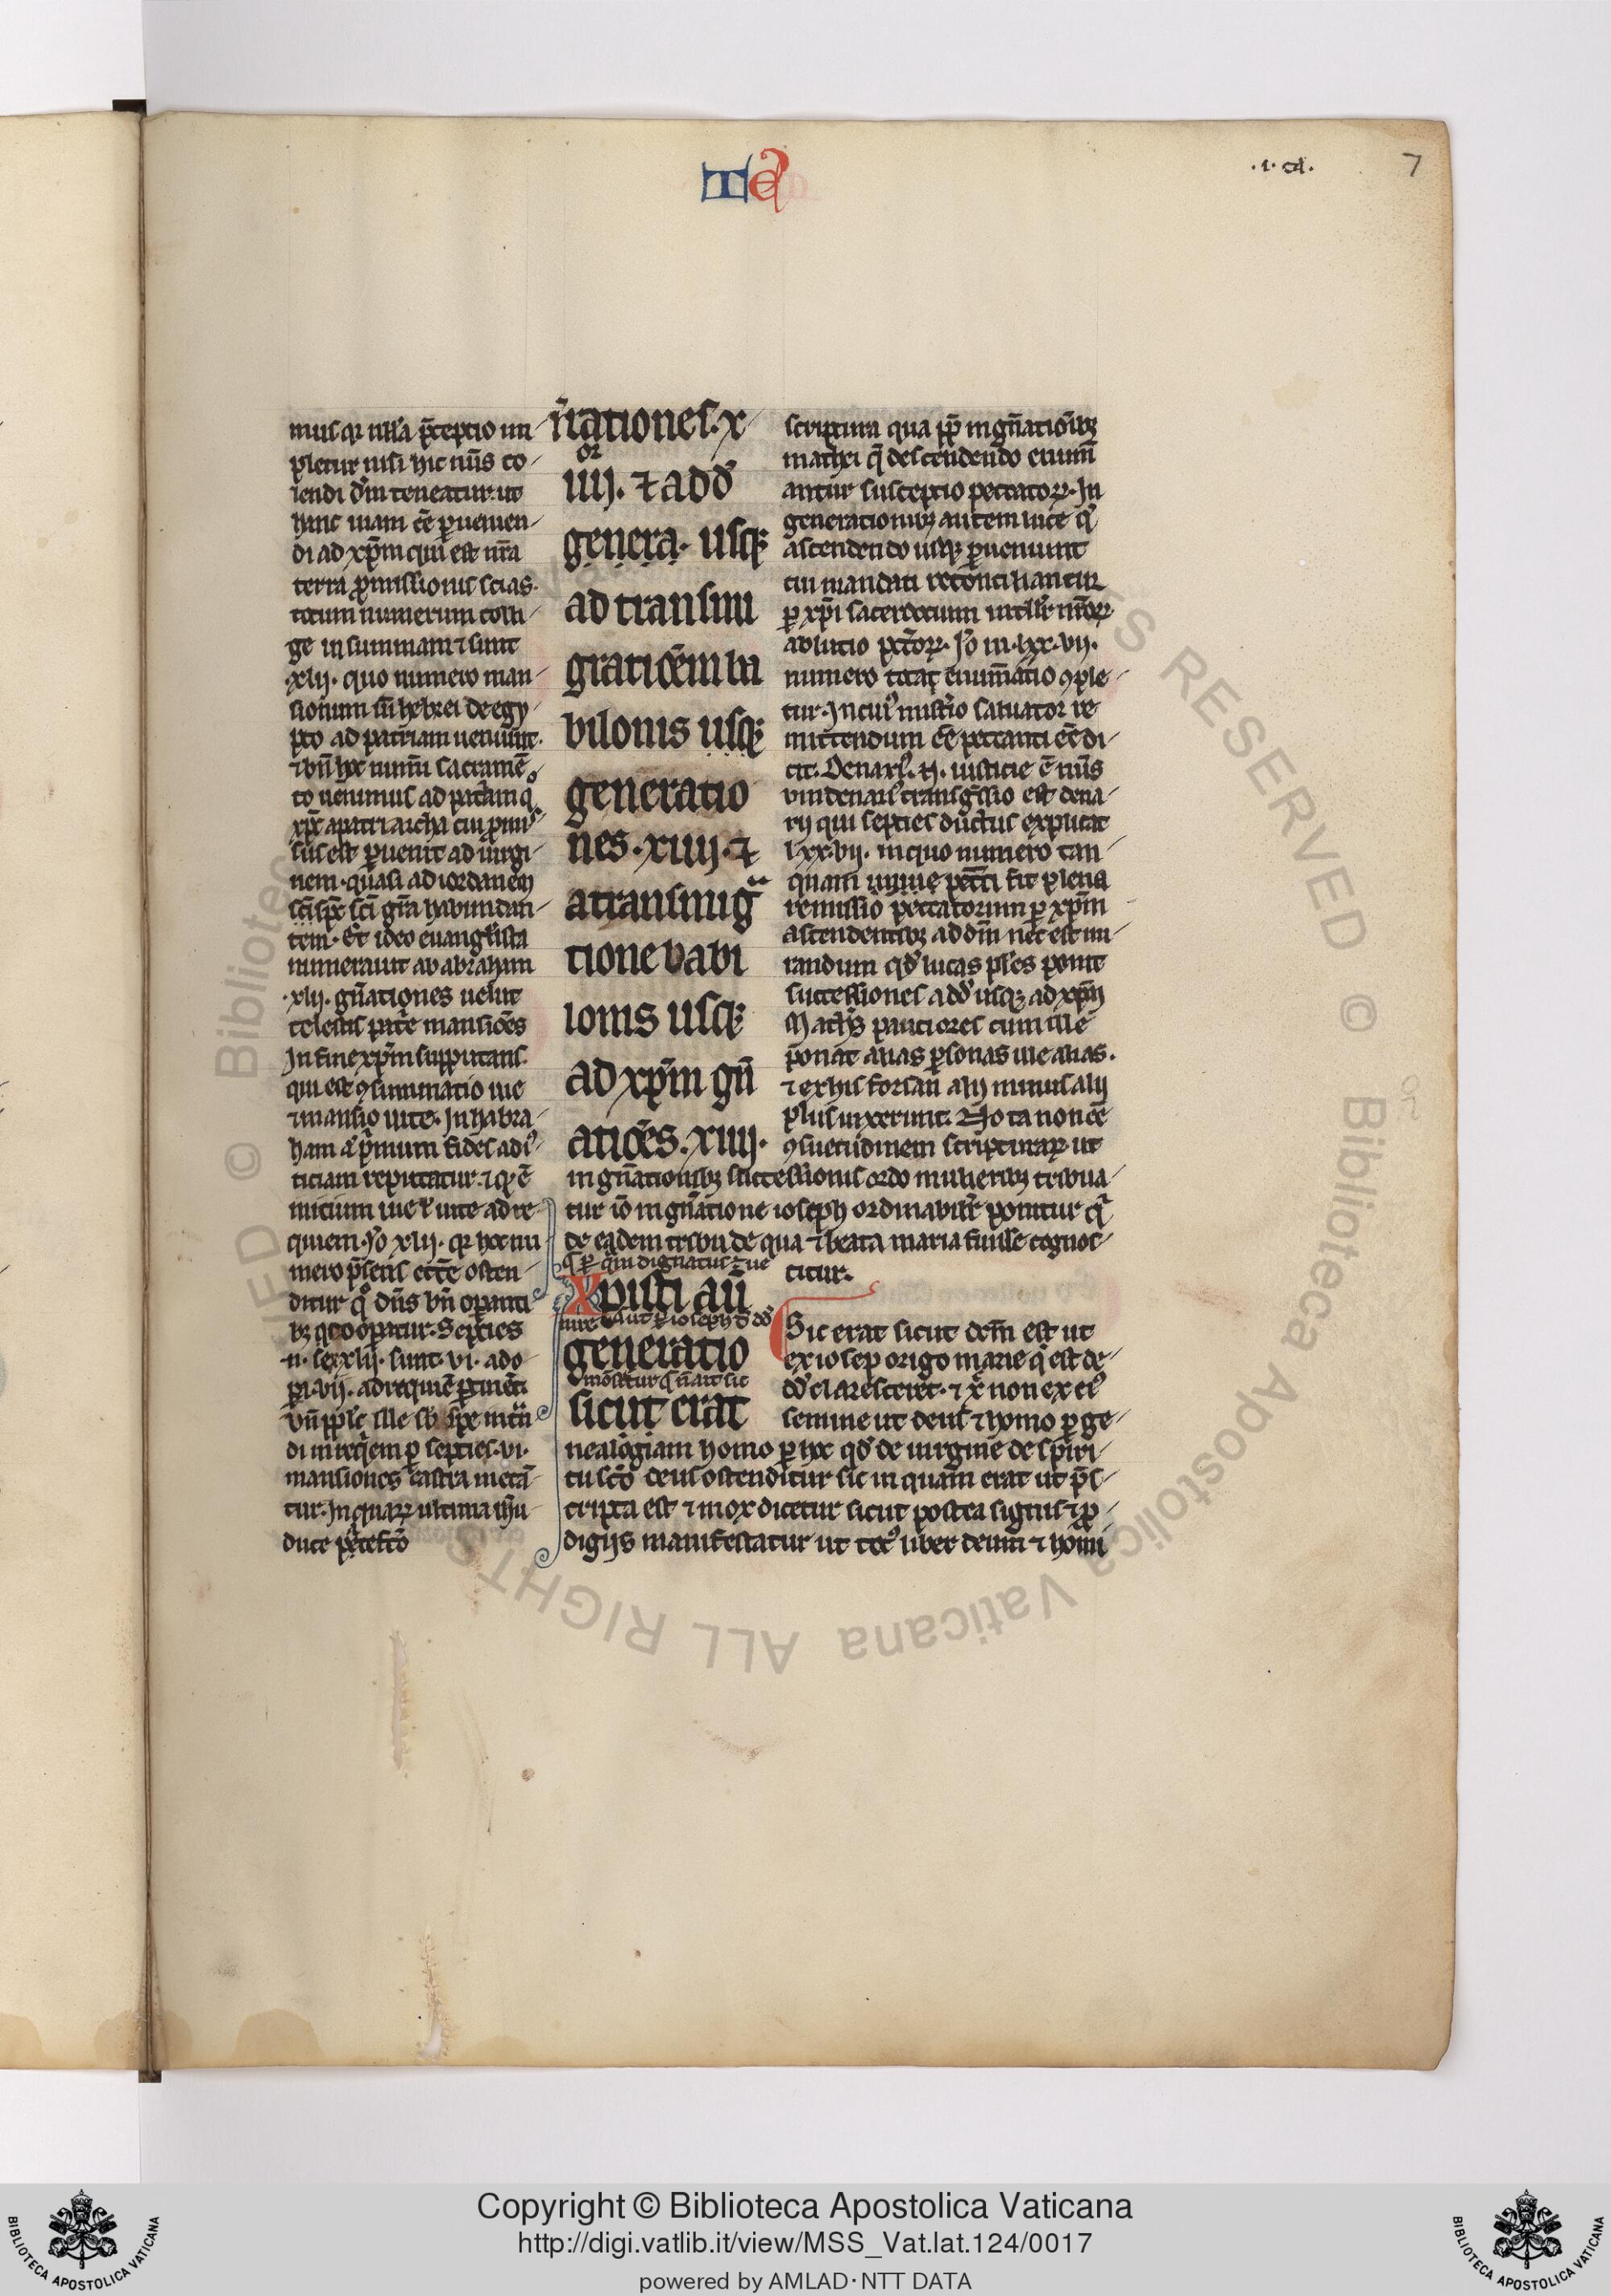 Ma
.i. ca.
7
mus qr nll'a p̄ceptio im
pletur nisi hic nūs co
lendi dm̄ teneatur. ut
hinc uiam eē ꝑuenien
di ad xp̄m qui est nr̄a
terra ꝓmissionis scias.
totum numerum colli
ge in summam ⁊ sunt
.xlii. quo numero man
sionum filii hebrei de egy
pto ad patriam ueniunt.
to uenimus ad patriam q
xp̄c a patriarcha cui ꝓmis
sus est ꝑuenit ad uirgi
nem. quasi ad iordanem
sc̄i sp̄c sc̄i gr̄a habundan
tem. Et ideo euangelista
numerauit ab abraham
.xlii. gn̄ationes uelut
celestis patrie mansiōes
In fine xp̄m supputans.
qui est ꝯsummatio uie
⁊ mansio uite. In habra
ham .i. p̄mum fides ad iꝰ
ticiam reputatur. ⁊ q. ē
inicium uie l' uite ad re
quiem. Iō xlii. qr hoc nu
mero p̄sens ecc̄e osten
ditur qͦ dn̄s bn̄ opanti
bꝫ cooꝑatur. Septies
.n. sex xlii. sunt. vi. ad o
pa .vii. ad requiē ꝑtinēt.
di in req̄em ꝑ septies .vi.
mansiones castra metā
tur. In quarꝝ ultima ihū
duce
n̄rationes. x
iiii. ⁊ a dd
genera. usqꝫ
ad transmi
gratiōem ba
bilonis usqꝫ
generatio
nes. xiiii. ⁊
a transmigͣ
tione babi
lonis usqꝫ
ad xp̄m gn̄
atiōes. xiiii.
scriptura qua ipē in gn̄ationibꝫ
mathei q̄ descendendo enum̄
antur susceptio peccatorꝝ. In
generationibꝫ autem luce qͥ
ascendendo usqꝫ ꝑueniunt
cui mandati reconciliantur
ꝑ xp̄i sacerdotium intell'r nr̄orꝝ
ablutio pcc̄orꝝ. Iō in .lxx. vii.
numero totaꝗ enum̄atio ꝯple
tur. In cuiꝰ misterio saluator re
mittendum eē peccanti eē di
cit. Denariꝰ .n. iusticie ē nūs
undenariꝰ transgr̄ssio est dena
rii qui septies ductus explicat
lxx. vii. in quo numero tan
quam uniūse pecc̄i fit plena
remissio peccatorum ꝑ xp̄m
ascendentibꝫ ad dm̄ nec est mi
randum qd' lucas ples ponit
successiones a dd' usqꝫ ad xp̄m
Matheus pauciores cum ille
ponat alias ꝑsonas iste alias.
⁊ ex his forsan alii minus alii
plus uixerunt. Nota non eē
ꝯsuetudinem scripturarꝝ ut
in gn̄ationibꝫ successionis ordo mulieribꝫ tribua
tur iō in gn̄atione ioseph ordinabilit' ponitur qͥ
de eadem tribu de qua ⁊ beata maria fuisse cognos
citur.
Xpisti aū
generatio
mōstratur q̄ n̄ aīt sic
sicut erat
Sic erat sicut dcm̄ est ut
ex iosep origo marie q̄ est de
dd' claresceret. ⁊ xp̄ non ex eiꝰ
semine ut deus ⁊ homo ꝑ ge
nealogiam homo ꝑ hoc qd' de uirgine de spiri
tu sc̄o deus ostenditur sic inquam erat ut p̄s
cripta est ⁊ mox dicetur sicut postea signis ⁊ ꝓ
digiis manifestatur ut totꝰ liber deum ⁊ homi
Copyright © Biblioteca Apostolica Vaticana
http://digi.vatlib.it/view/MSS_Vat.lat.124/0017
powered by AMLAD·NTT DATA
BIBLIOTECA APOSTOLICA VATICANA
BIBLIOTECA APOSTOLICA VATICANA
© Biblioteca Apostolica Vaticana ALL RIGHTS RESERVED